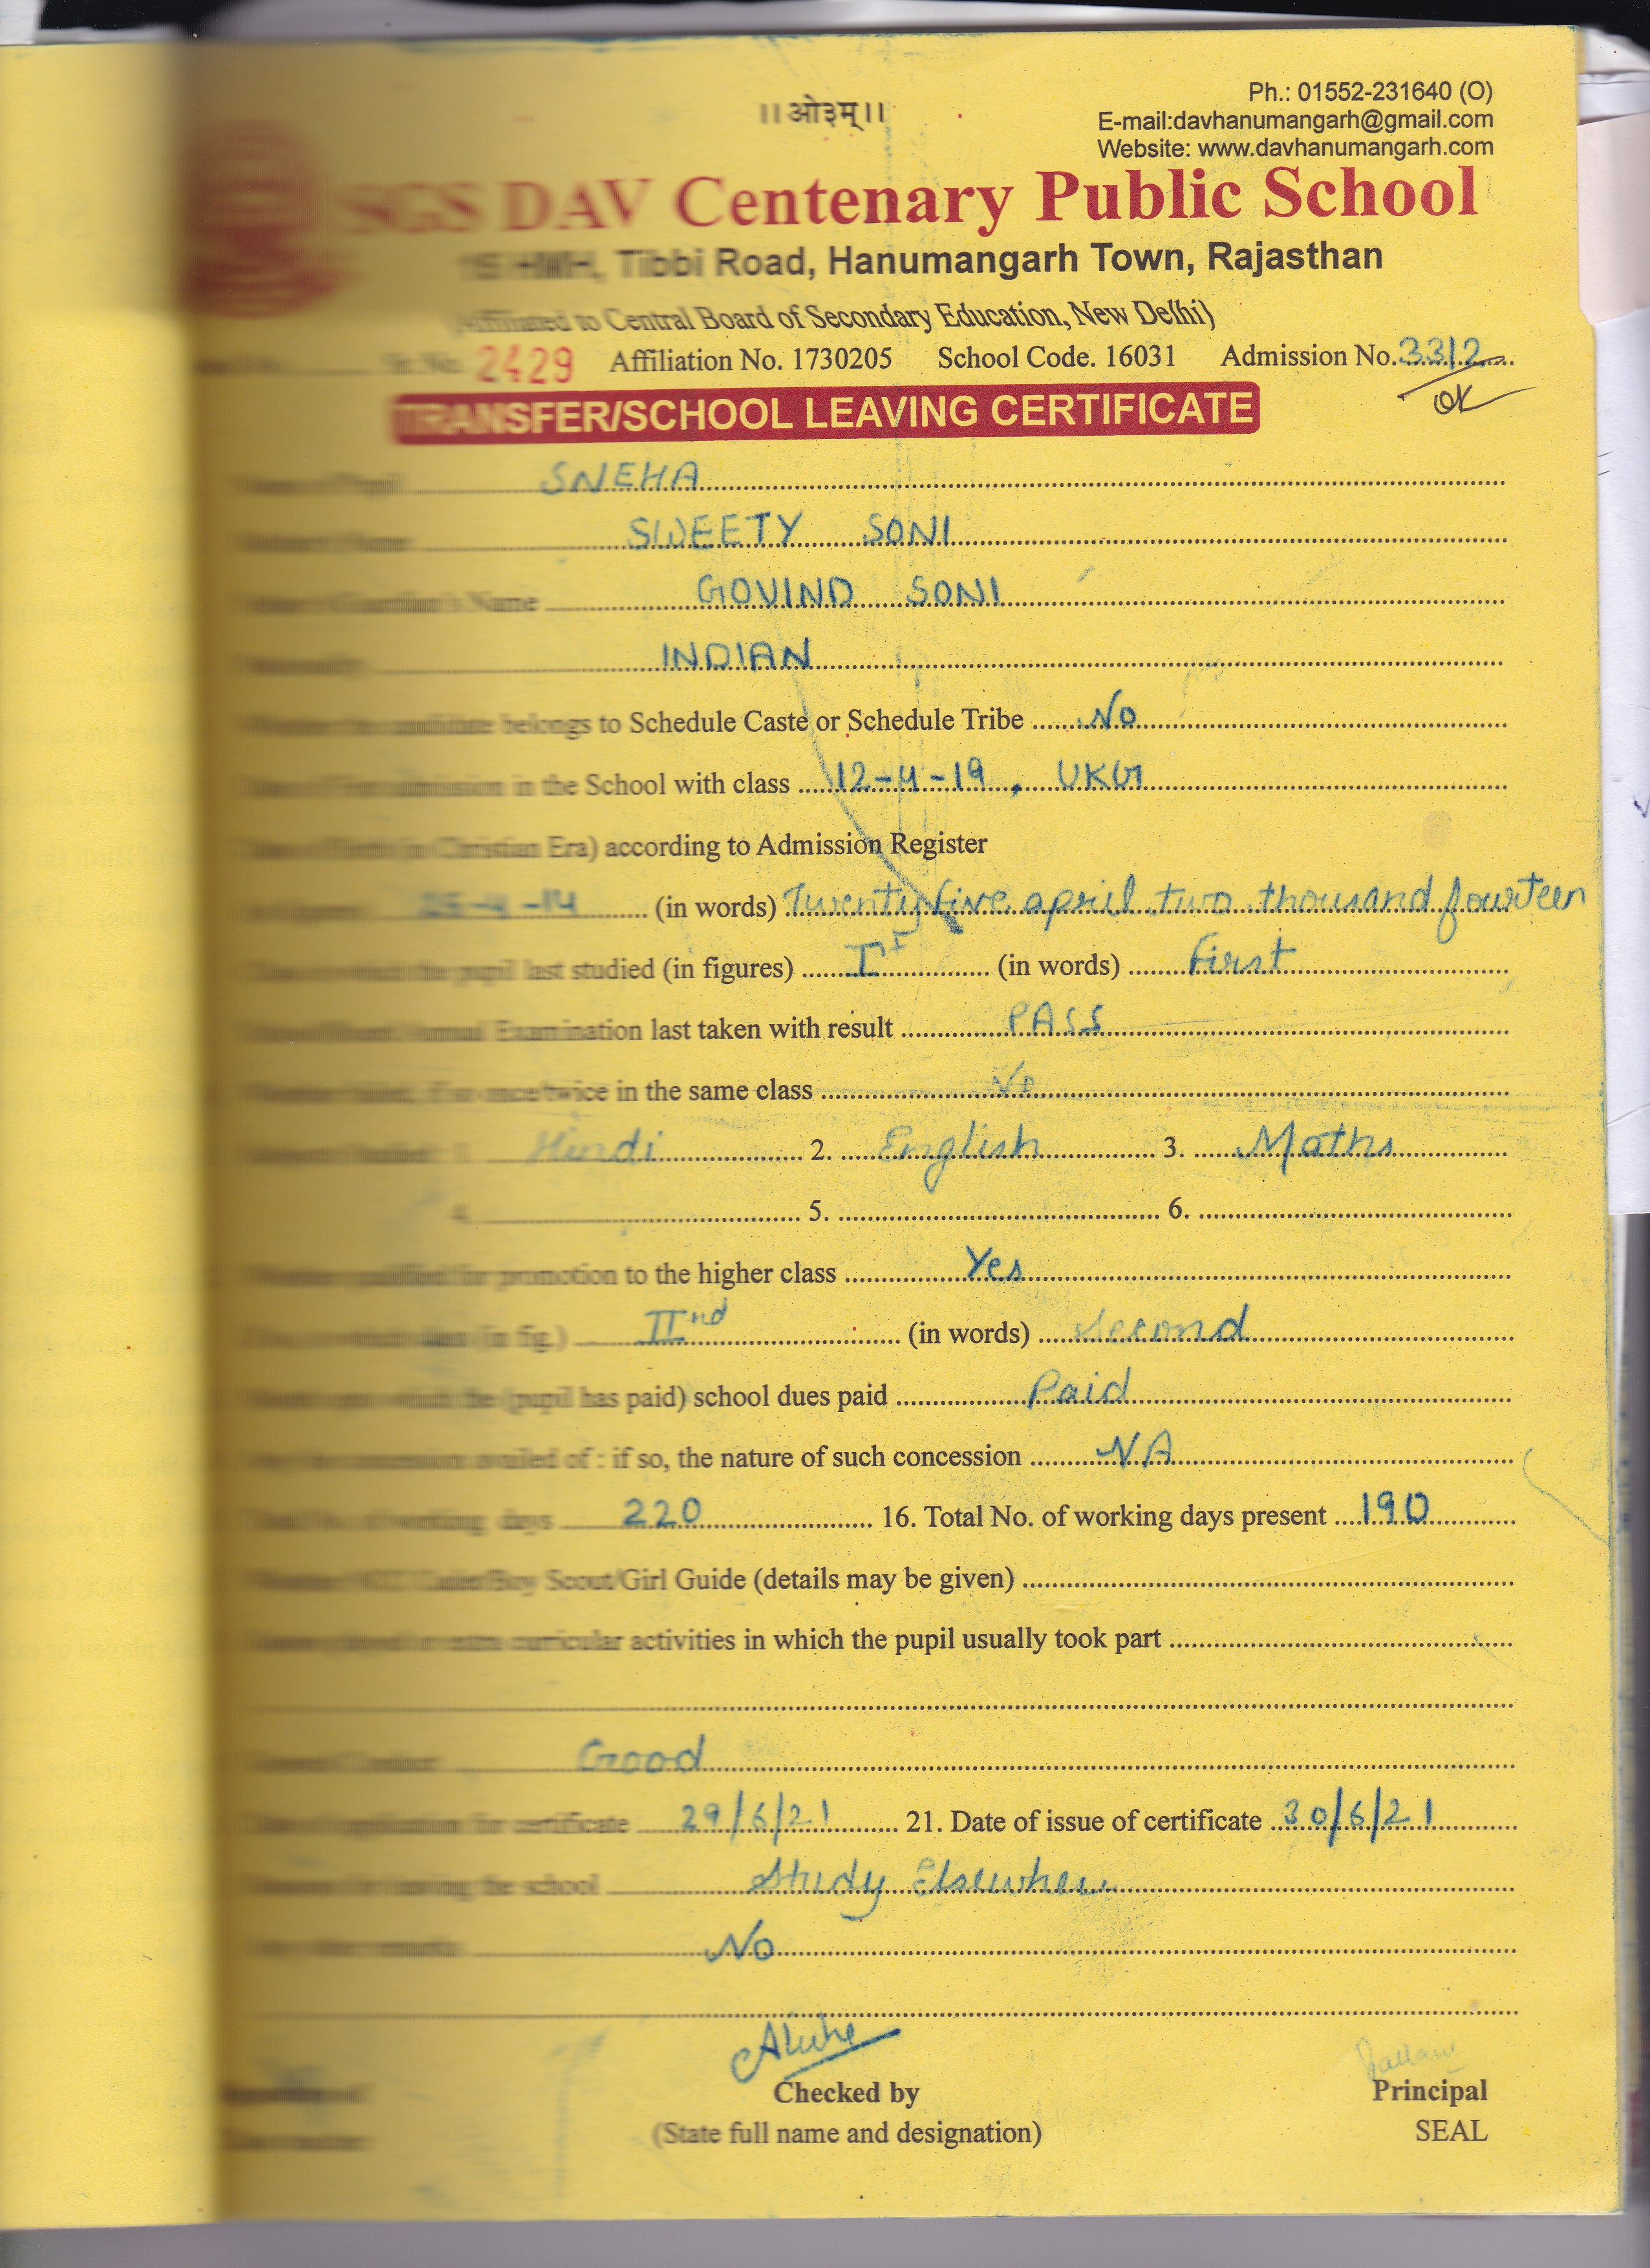 ।। ओ३म् ।।
Ph.: 01552-231640 (O)
E-mail:davhanumangarh@gmail.com
Website: www.davhanumangarh.com
SGS DAV Centenary Public School
15 HMH, Tibbi Road, Hanumangarh Town, Rajasthan
(Affiliated to Central Board of Secondary Education, New Delhi)
Sr. No. 2429 Affiliation No. 1730205 School Code. 16031 Admission No. 3312
OK
TRANSFER/SCHOOL LEAVING CERTIFICATE
Name of Pupil SNEHA
SWEETY SONI
Name GOVIND SONI
INDIAN
belongs to Schedule Caste or Schedule Tribe No
admission in the School with class 12-4-19, UKG
(in Christian Era) according to Admission Register
25-4-14 (in words) Twenty five april two thousand fourteen
the pupil last studied (in figures) Ist (in words) First
Annual Examination last taken with result PASS
if so once/twice in the same class No
Hindi 2. English 3. Maths
4. 5. 6.
promotion to the higher class Yes
(in fig.) IInd (in words) Second
(pupil has paid) school dues paid Paid
availed of : if so, the nature of such concession NA
working days 220 16. Total No. of working days present 190
Boy Scout/Girl Guide (details may be given)
extra curricular activities in which the pupil usually took part
Good
application for certificate 29/6/21 21. Date of issue of certificate 30/6/21
leaving the school Study Elsewhere
No
Checked by Principal
(State full name and designation) SEAL